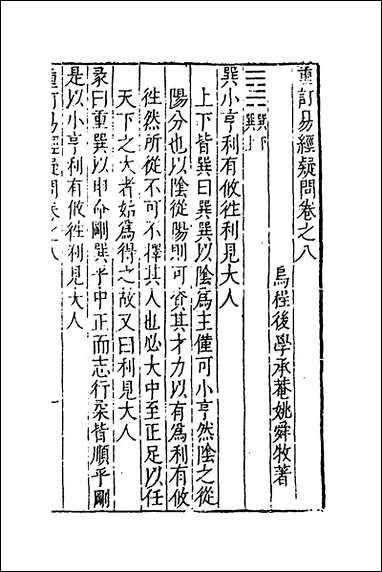 重訂易經疑問卷之八
烏程後學承菴姚舜牧著
䷸巽下巽上
巽小亨利有攸徃利見大人
上下皆巽曰巽巽以陰為主僅可小亨然陰之從
陽分也以陰從陽則可資其才力以有為利有攸
徃然所從不可不擇其人也必大中至正足以任
天下之大者始為得之故又曰利見大人
彖曰重巽以申命剛巽乎中正而志行柔皆順乎剛
是以小亨利有攸徃利見大人
重訂易經疑問卷之八 一